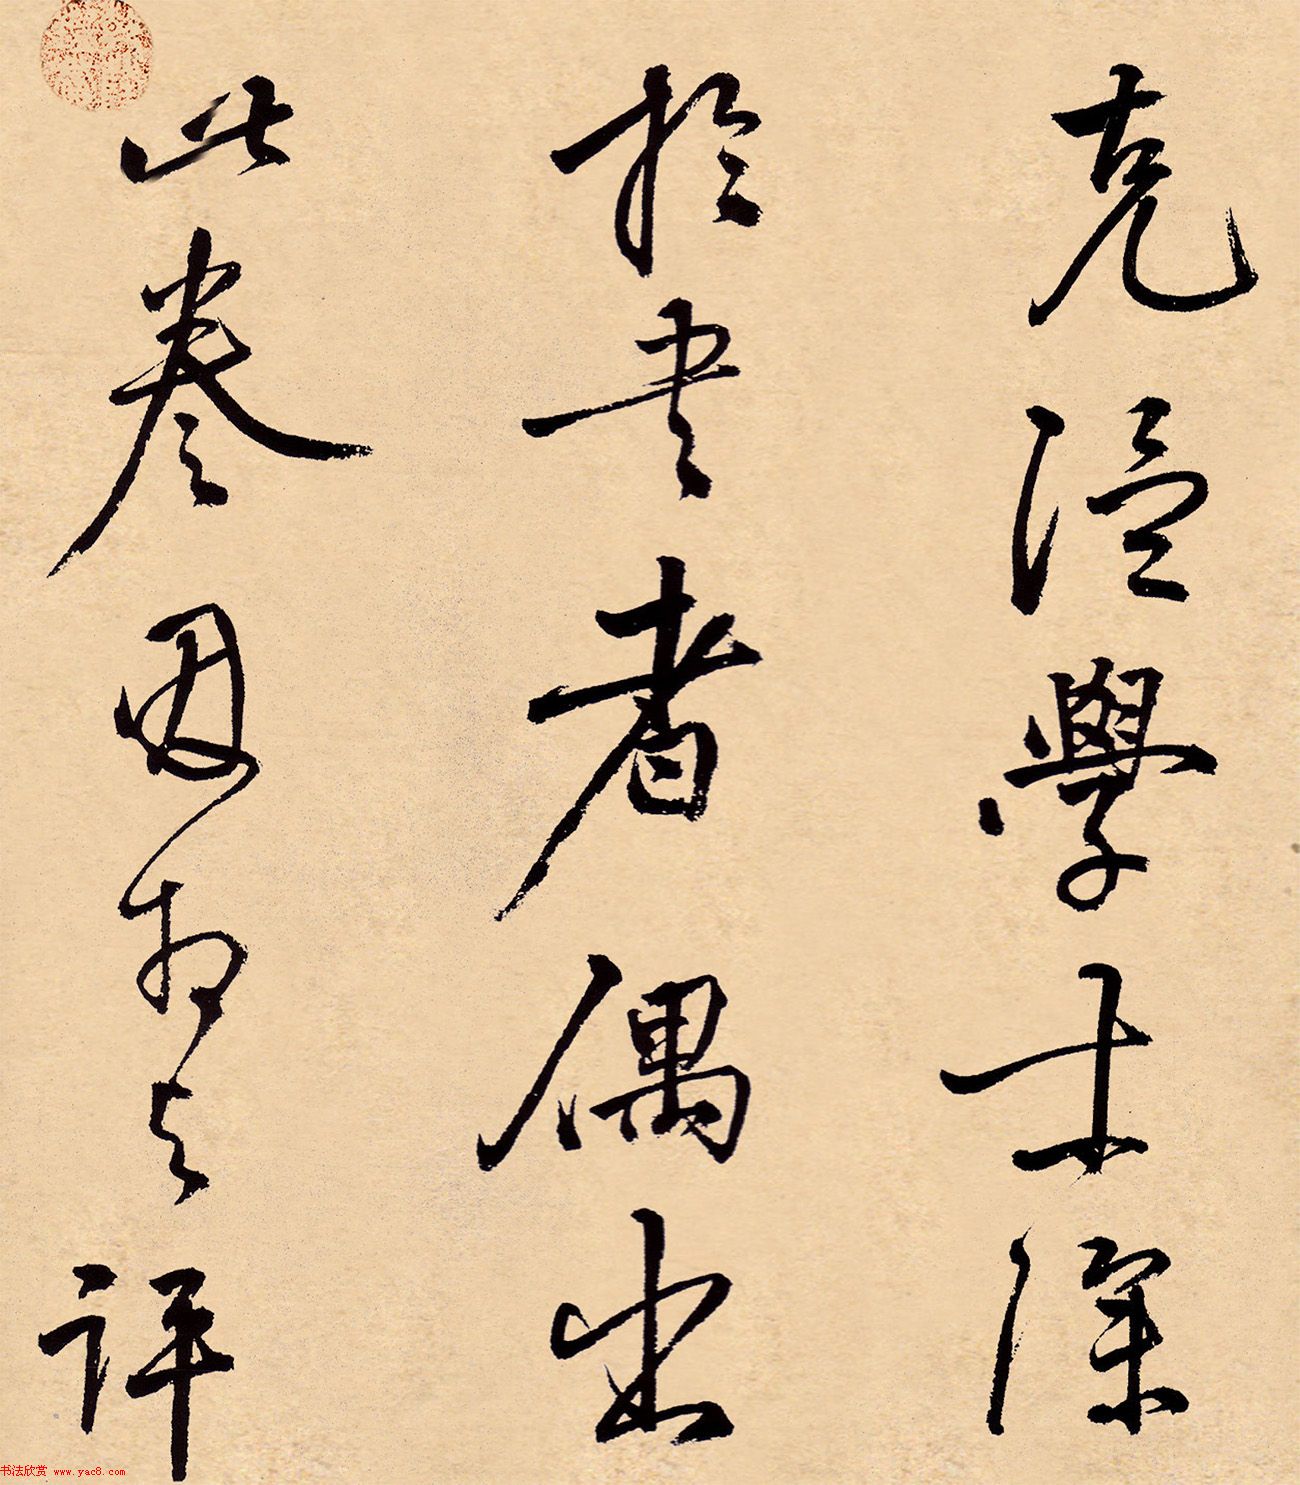 克温學士深
於書者偶出
此卷因相与評
书法欣赏 www.yac8.com